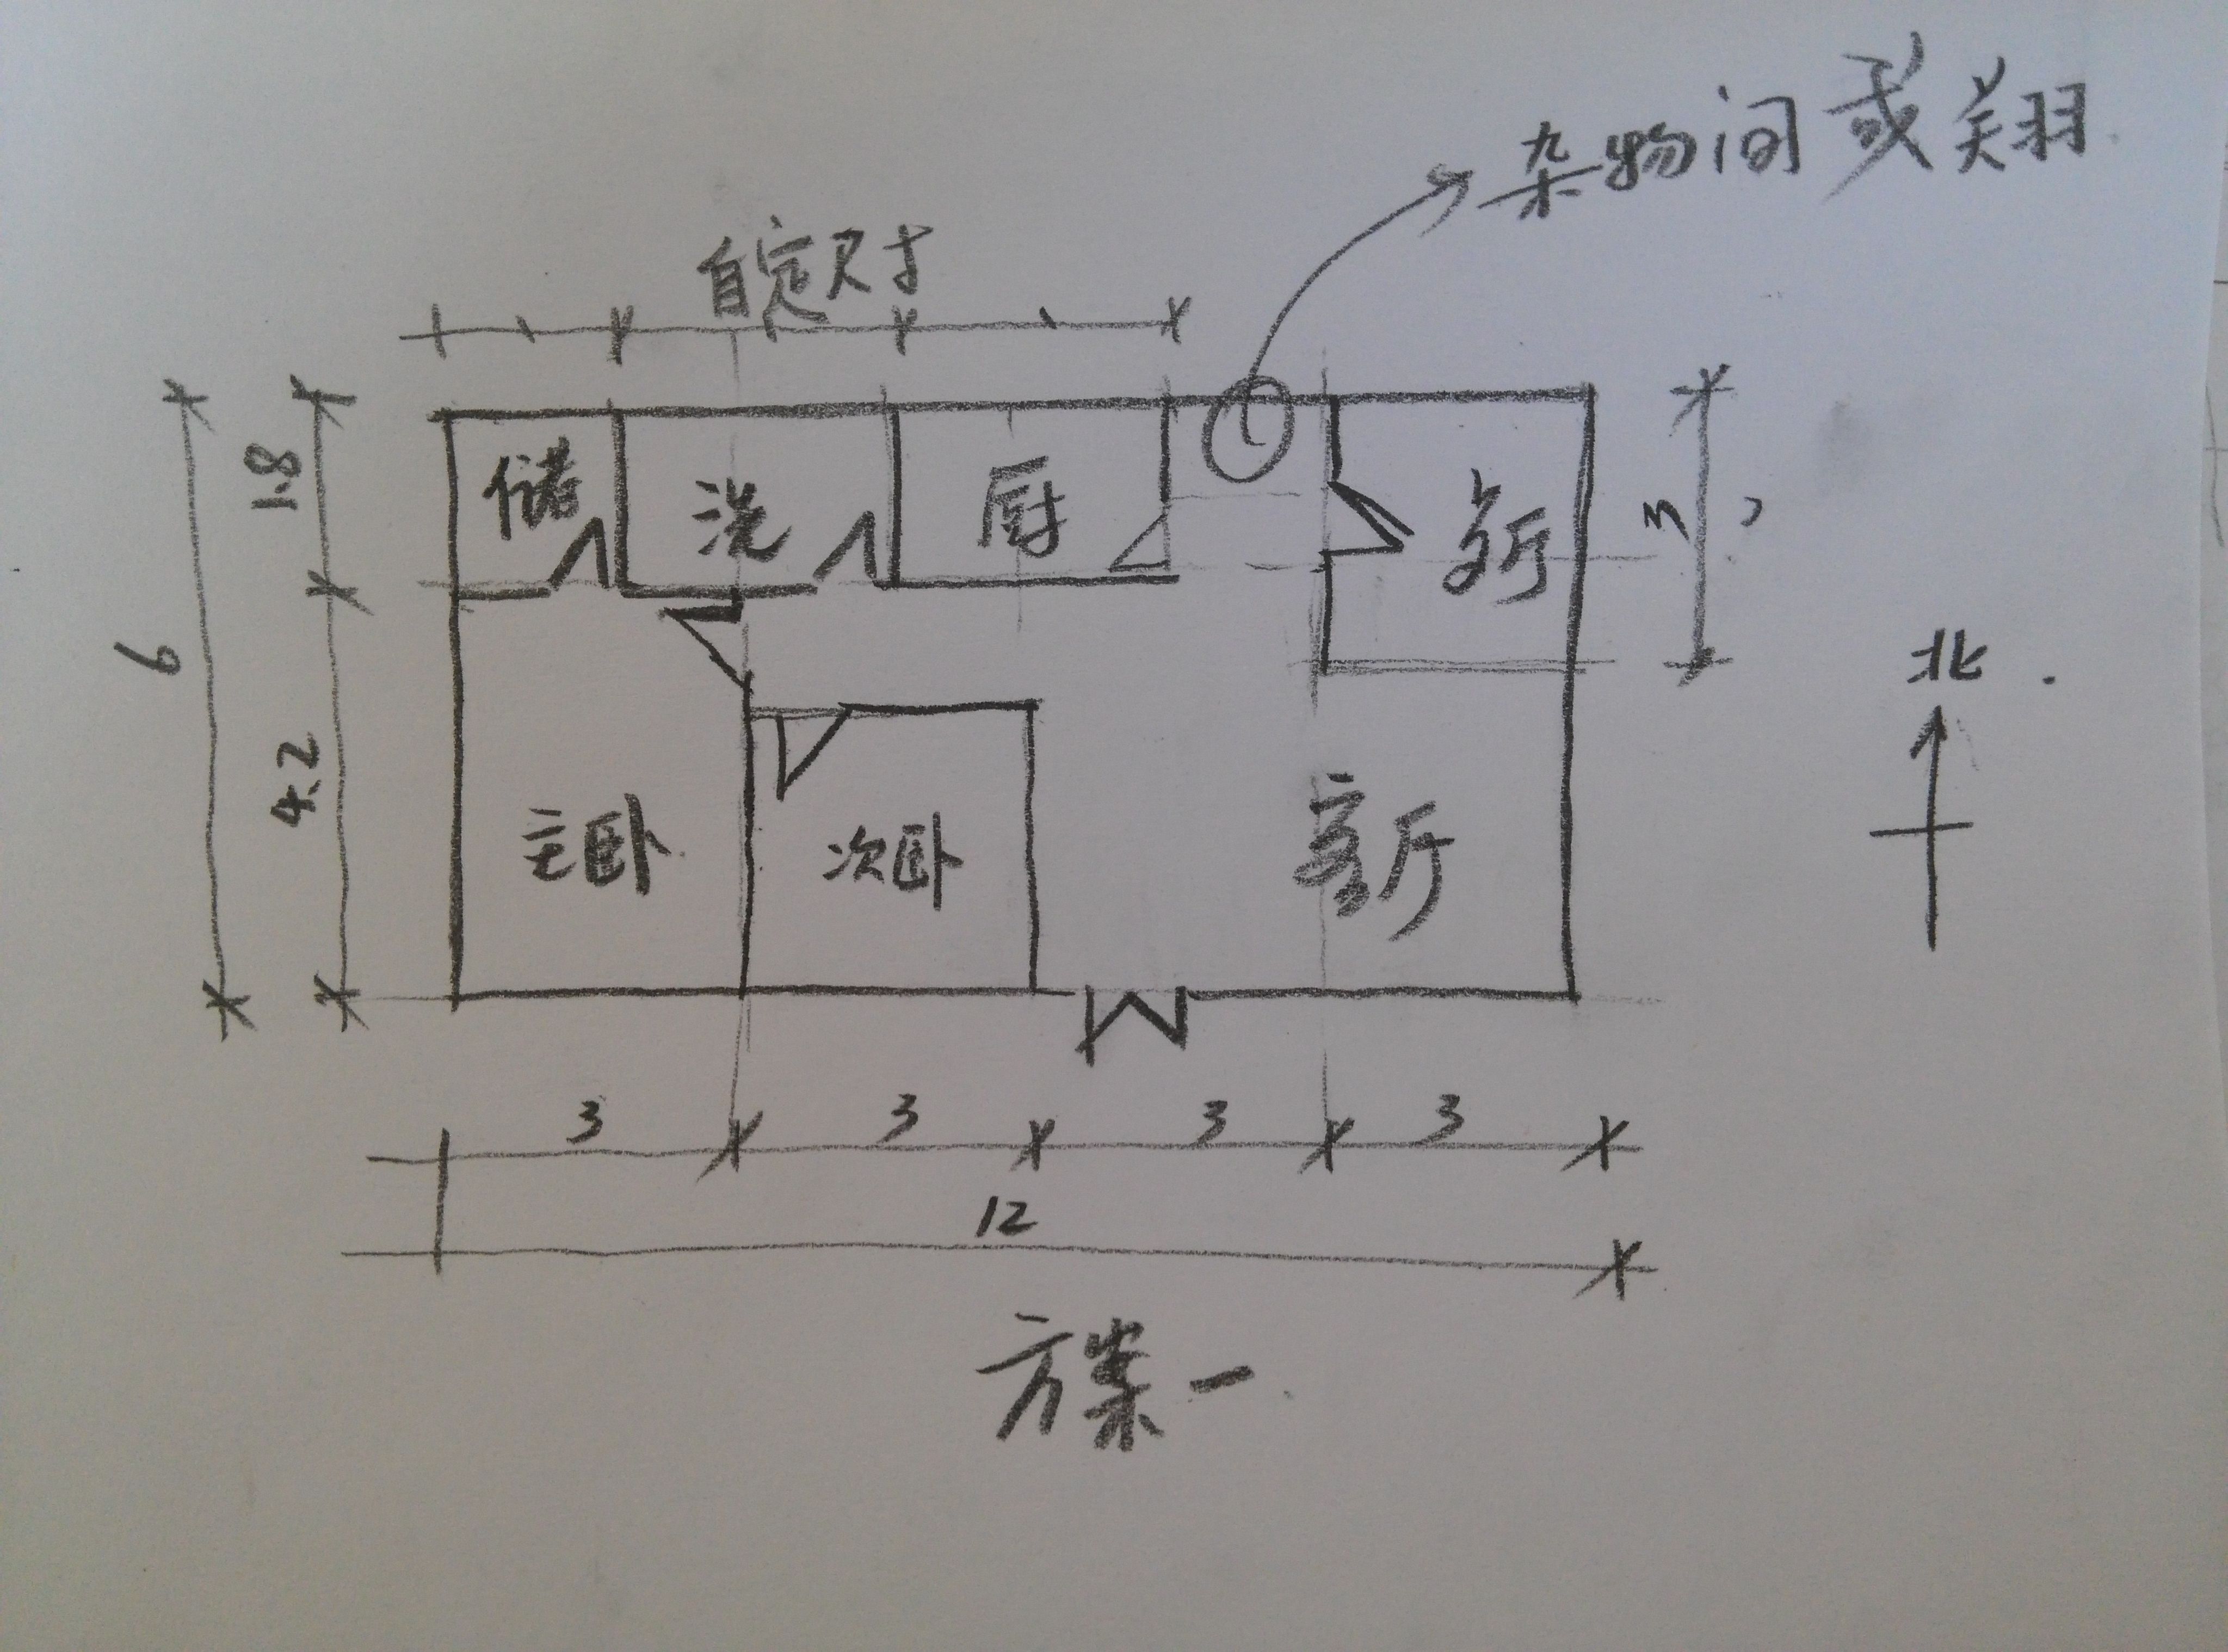 杂物间或关羽
自定尺寸
1.8
储
洗
厨
餐厅
3
6
北
4.2
主卧
次卧
客厅
3
3
3
3
12
方案一